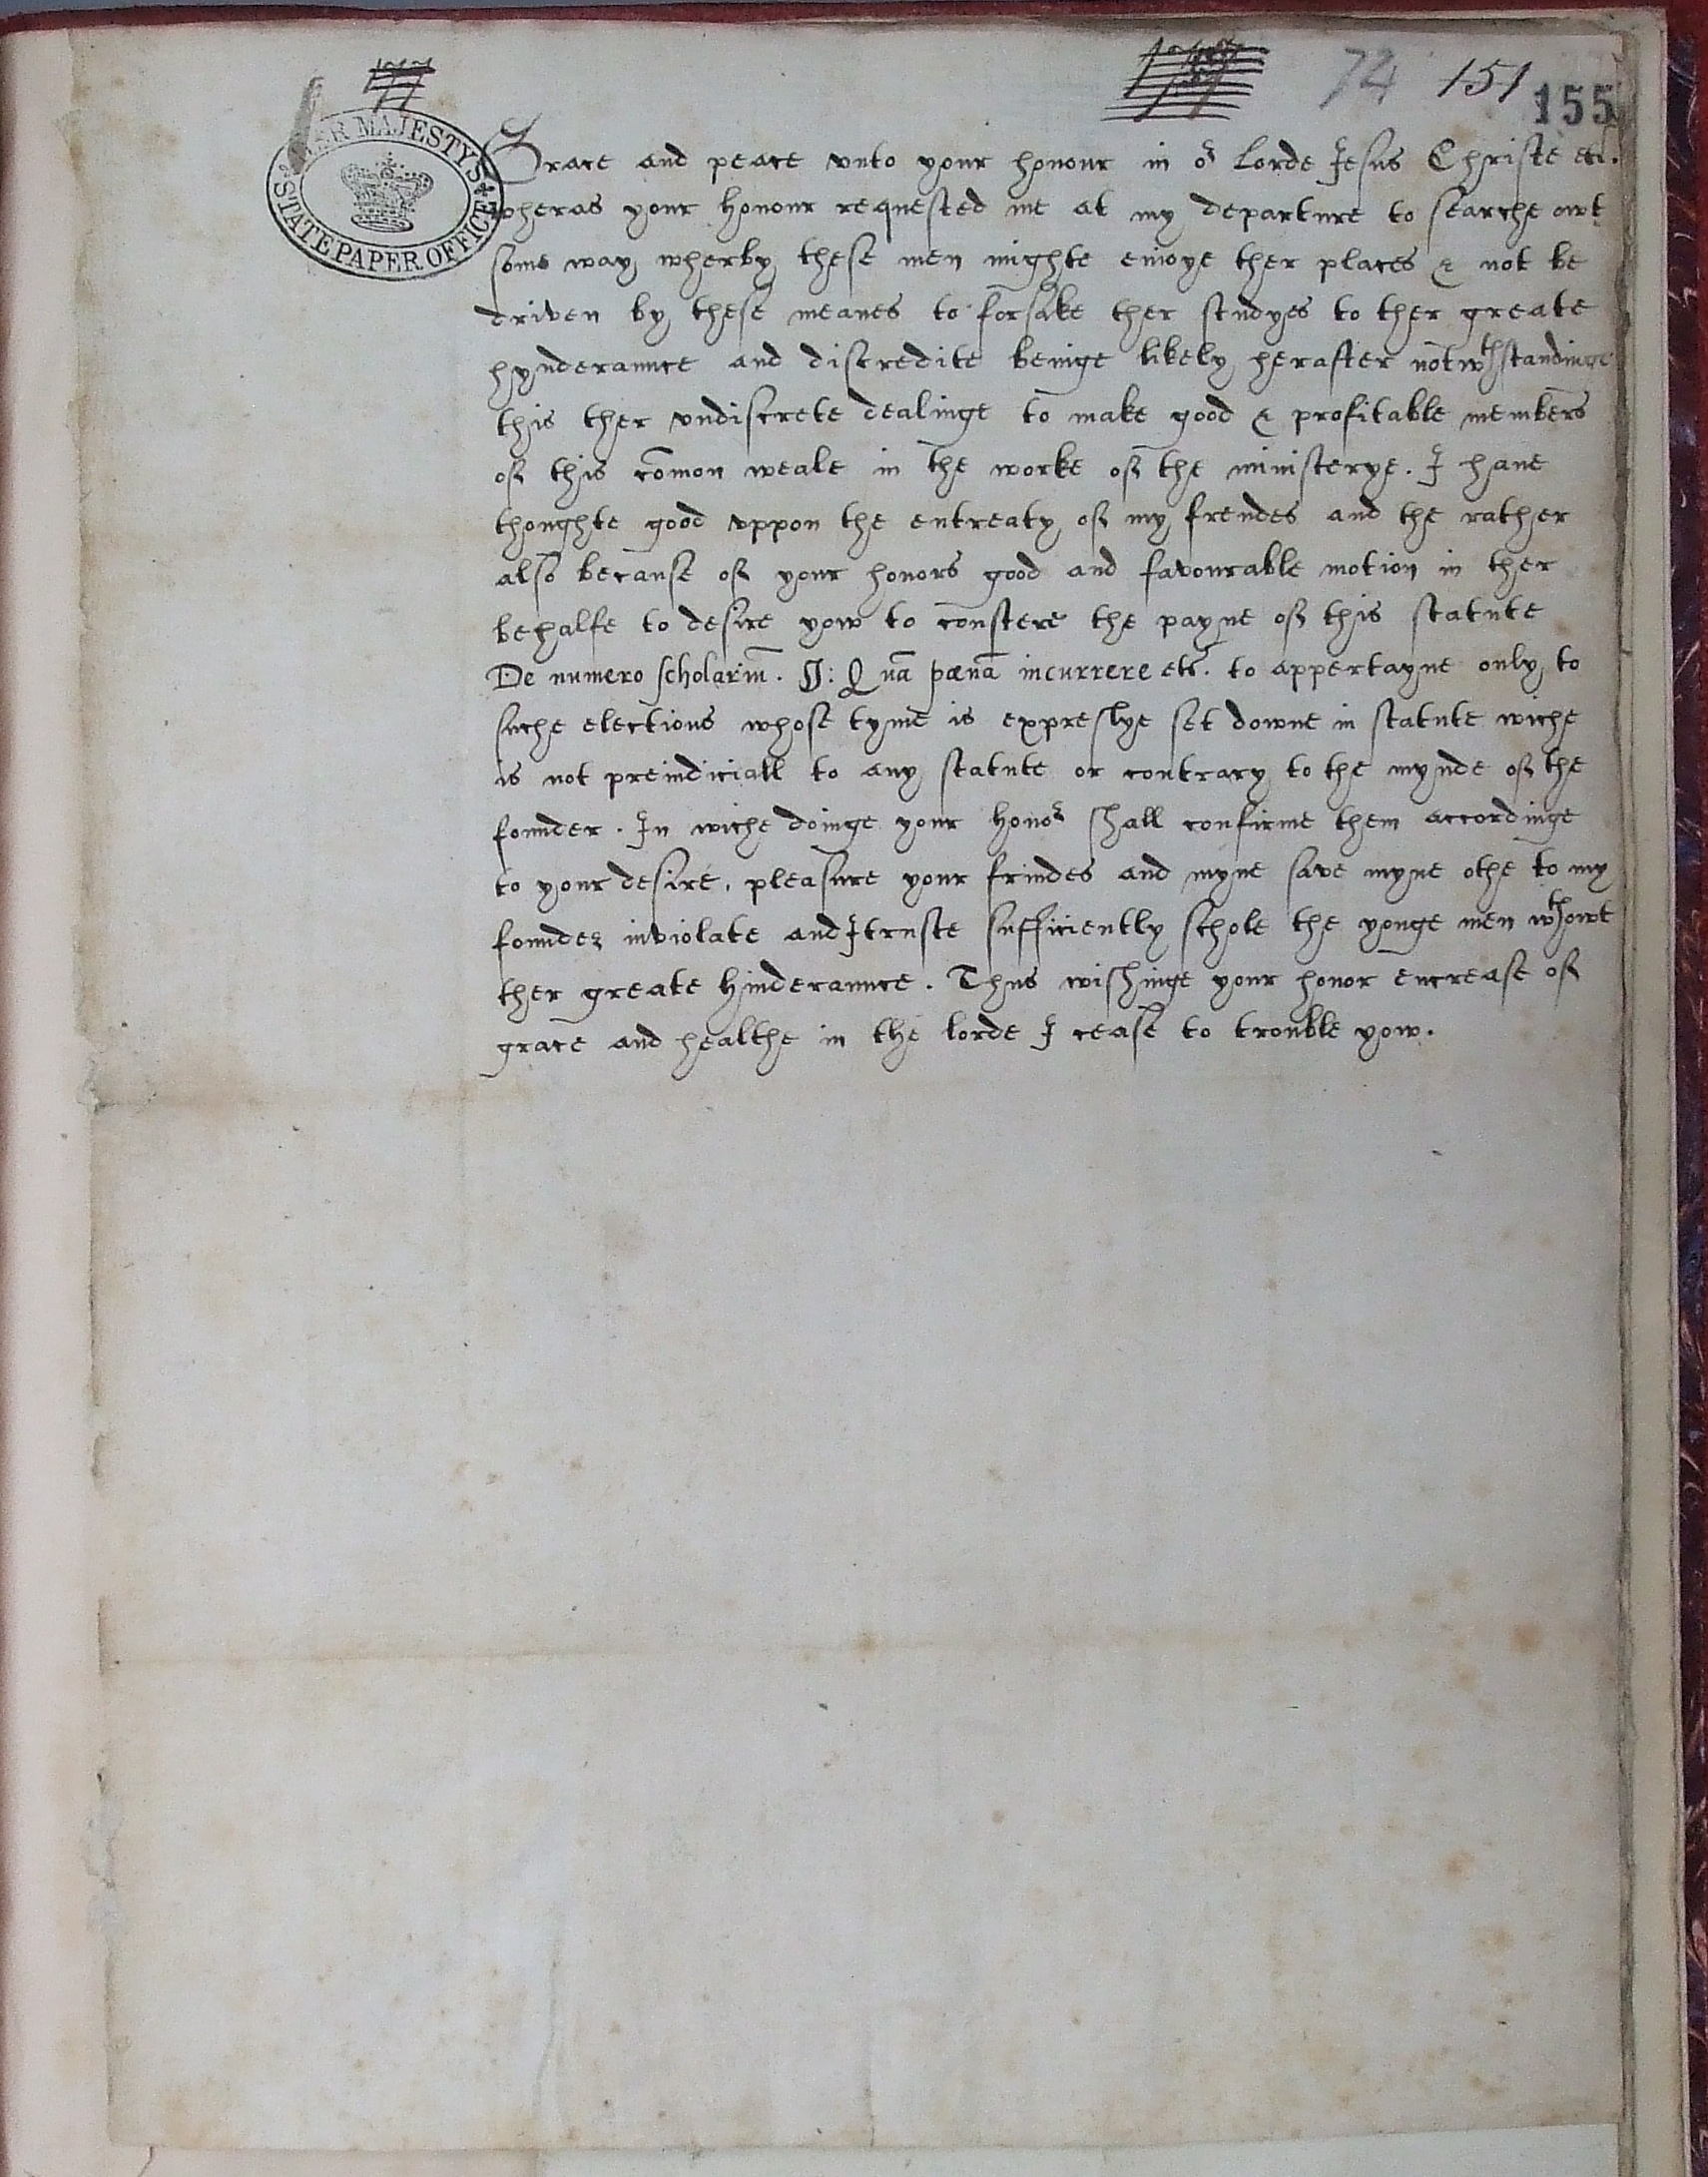 74 151 155
HER MAJESTY'S STATE PAPER OFFICE
Grace and peace vnto your honour in oʳ Lorde Jesus Christe etc.
wheras your Honour requested me at my departure to searche owt
some way wherby these men mighte enioye ther places & not be
driven by these meanes to forsake ther studyes to ther great
hynderaunce and discredite beinge likely herafter notwᵗʰstandinge
this ther vndiscrete dealinge to make good & profitable members
of this com̄on weale in the worke of the ministerye. I haue
thoughte good vppon the entreaty of my frendes and the rather
also because of your honors good and favourable motion in ther
behalfe to desire yow to constere the payne of this statute
De numero scholariū. §: Quā pænā incurrere etc. to appertayne only to
suche elections whose tyme is expreslye set downe in statute wiche
is not preiudiciall to any statute or contrary to the mynde of the
founder. In wiche doinge your Honoʳ shall confirme them accordinge
to your desire, pleasure your frindes and myne save myne othe to my
founder inviolate and I truste sufficiently schole the yonge men wᵗʰowt
ther greate Hinderaunce. Thus wishinge your honor encrease of
grace and healthe in the lorde I cease to trouble yow.